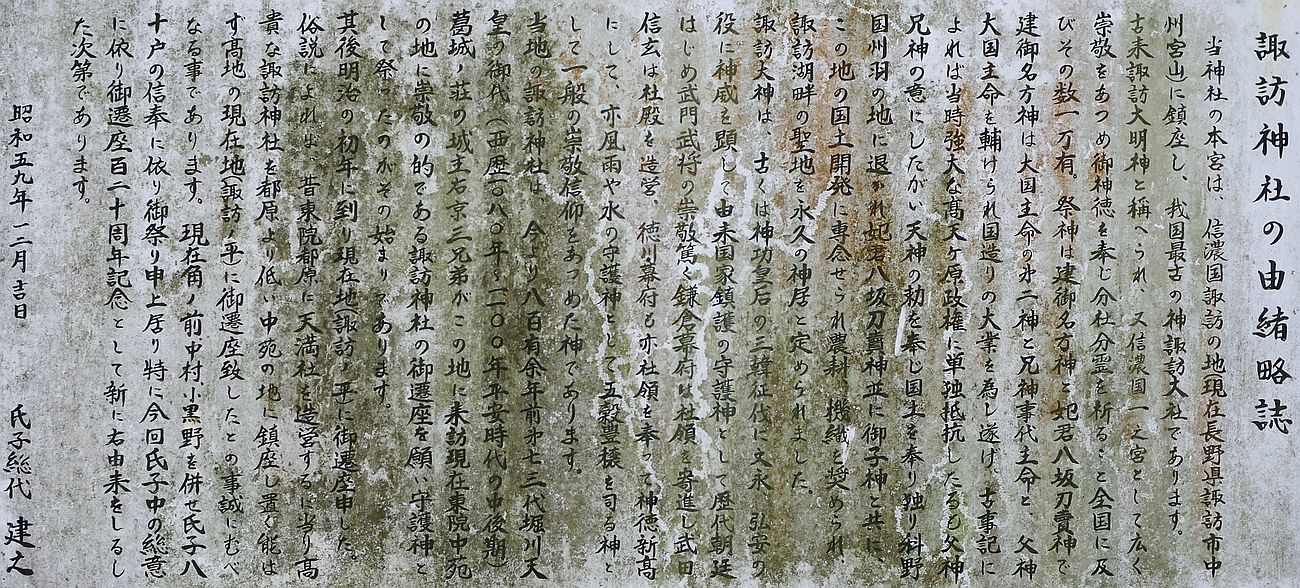 諏訪神社の由緒略誌
当神社の本宮は、信濃国諏訪の地現在長野県諏訪市中
州宮山に鎮座し、我国最古の神諏訪大社であります。
古来諏訪大明神と稱へられ、又信濃国一之宮として広く
崇敬をあつめ御神徳を奉じ分社分霊を祈ること全国に及
びその数一万有。祭神は建御名方神と妃君八坂刀賣神で
建御名方神は大国主命の㐧二神と兄神事代主命と、父神
大国主命を輔けられ国造りの大業を為し遂げ、古事記に
よれば当時強大な高天ヶ原政権に単独抵抗したるも父神
兄神の意にしたがい天神の勅を奉じ国土を奉り独り科野
国州羽の地に退かれ妃君八坂刀賣神並に御子神と共に、
この地の国土開発に専念せられ農耕、機織を奨められ、
諏訪湖畔の聖地を永久の神居と定められました。
諏訪大神は、古くは神功皇后の三韓征伐に文永、弘安の
役に神威を顕して由来国家鎮護の守護神として歴代朝廷
はじめ武門武将の崇敬篤く鎌倉幕府は社領を寄進し武田
信玄は社殿を造営、徳川幕府も亦社領を奉って神徳新高
にして、亦風雨や水の守護神として五穀豊穣を司る神と
して一般の崇敬信仰をあつめた神であります。
当地の諏訪神社は、今より八百有余年前㐧七三代堀川天
皇の御代(西歴一〇八〇年~一一〇〇年平安時代の中後期)
葛城ノ荘の城主右京三兄弟がこの地に来訪現在東院中苑
の地に崇敬の的である諏訪神社の御遷座を願い守護神と
して祭ったのがその始まりであります。
其後明治の初年に到り現在地(諏訪ノ平)に御遷座申した。
俗説によれば、昔東院都原に天満社を造営するに当り高
貴な諏訪神社を都原より低い中苑の地に鎮座し置く能は
ず高地の現在地諏訪ノ平に御遷座致したとの事誠にむべ
なる事であります。現在角ノ前中村小黒野を併せ氏子八
十戸の信奉に依り御祭り申上居り特に今回氏子中の総意
に依り御遷座百二十周年記念として新に右由来をしるし
た次第であります。
昭和五九年一二月吉日 氏子総代 建之